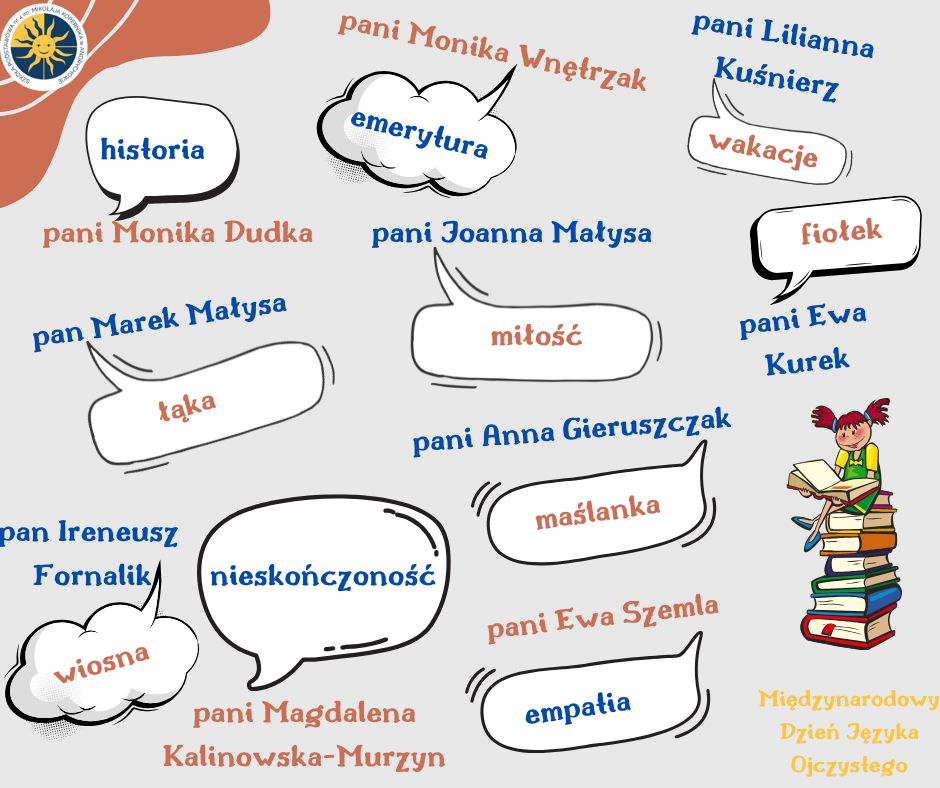 SZKOŁA PODSTAWOWA nr 4 im. MIKOŁAJA KOPERNIKA w ANDRYCHOWIE
pani Monika Wnętrzak
emerytura
pani Lilianna
Kuśnierz
wakacje
historia
pani Monika Dudka
pani Joanna Małysa
miłość
fiołek
pani Ewa
Kurek
pan Marek Małysa
łąka
pani Anna Gieruszczak
maślanka
pan Ireneusz
Fornalik
wiosna
nieskończoność
pani Magdalena
Kalinowska-Murzyn
pani Ewa Szemla
empatia
Międzynarodowy
Dzień Języka
Ojczystego